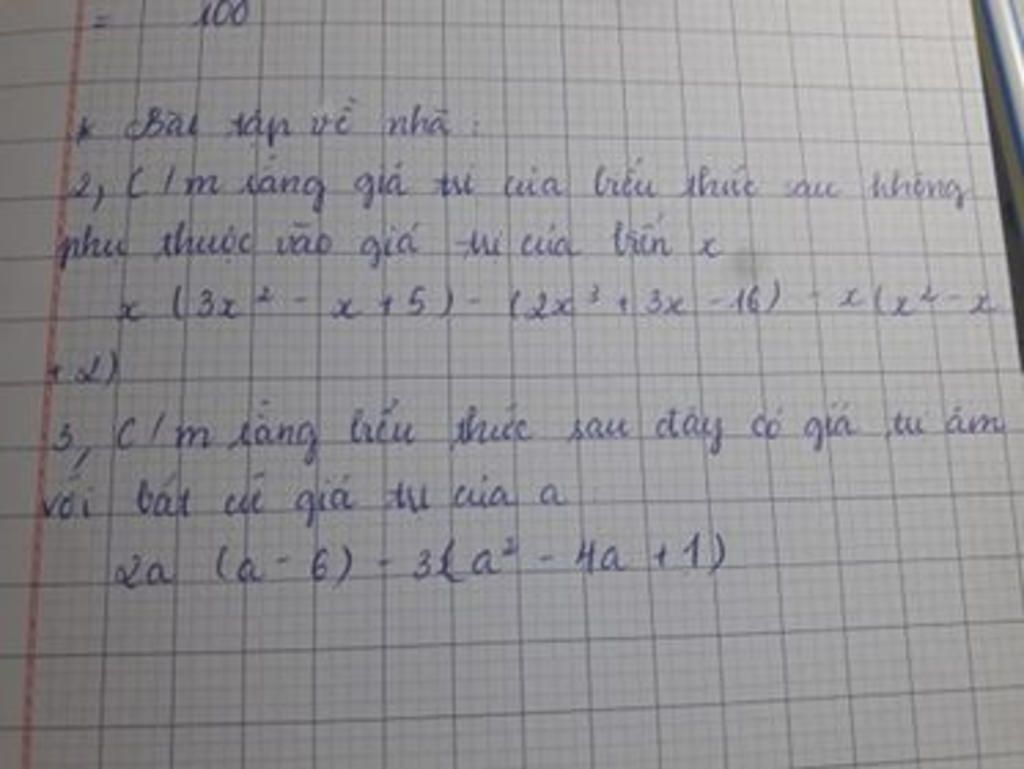 = 100
* Bài tập về nhà :
2, C/m rằng giá trị của biểu thức sau không
phụ thuộc vào giá trị của biến x
x (3x² - x + 5) - (2x³ + 3x - 16) - x (x² - x
+ 2)
3, C/m rằng biểu thức sau đây có giá trị âm
với bất cứ giá trị của a
2a (a - 6) - 3(a² - 4a + 1)